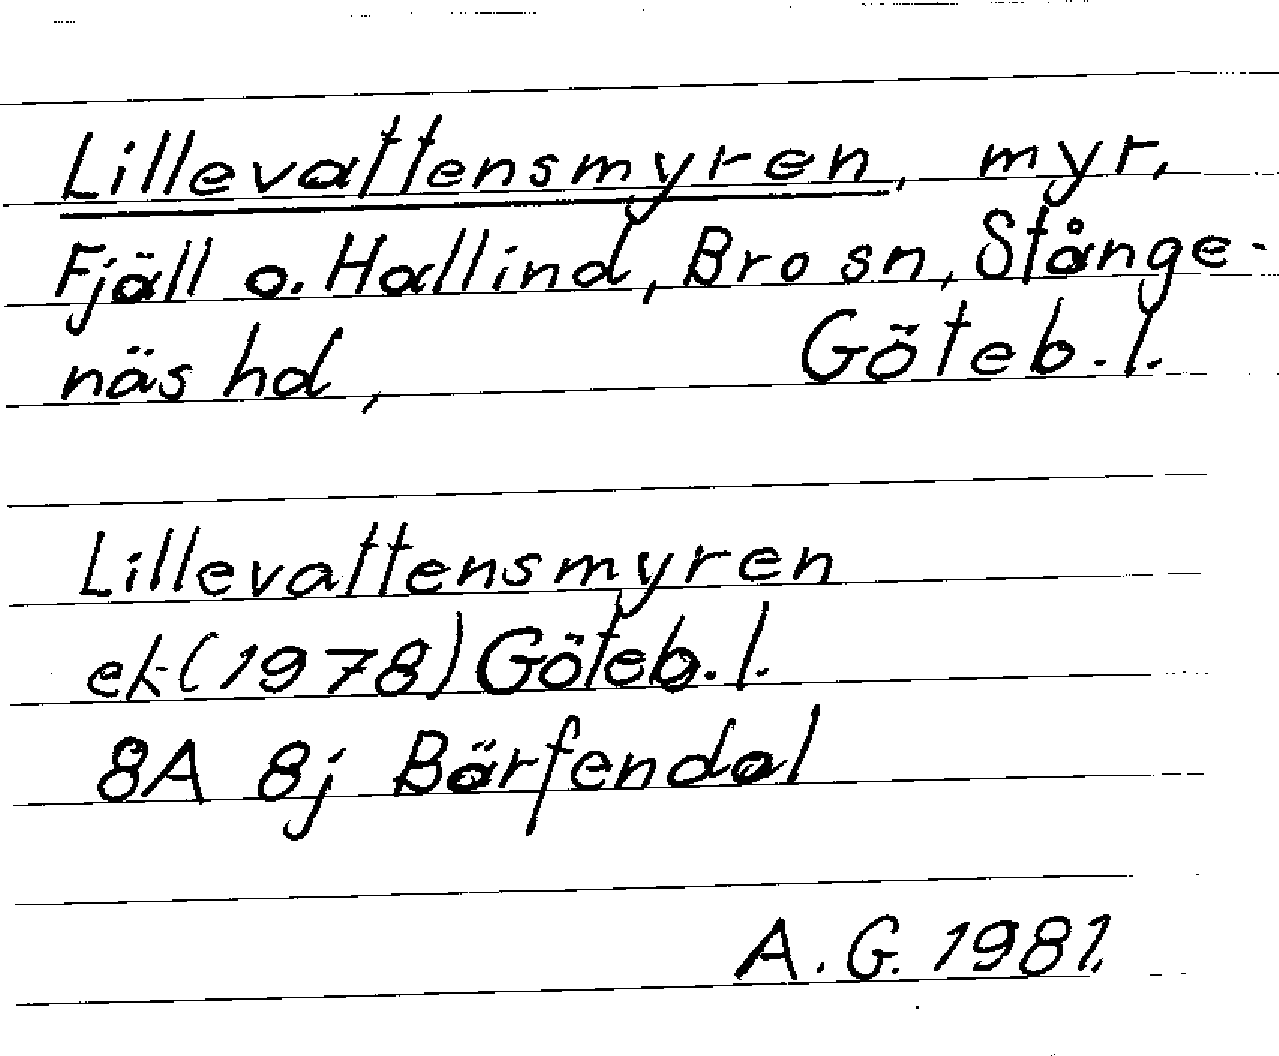 Lillevattensmyren, myr,
Fjäll o. Hallind, Bro sn, Stånge-
näs hd, Göteb. l.
Lillevattensmyren
ek (1978) Göteb. l.
8A 8j Bärfendal
A. G. 1981.